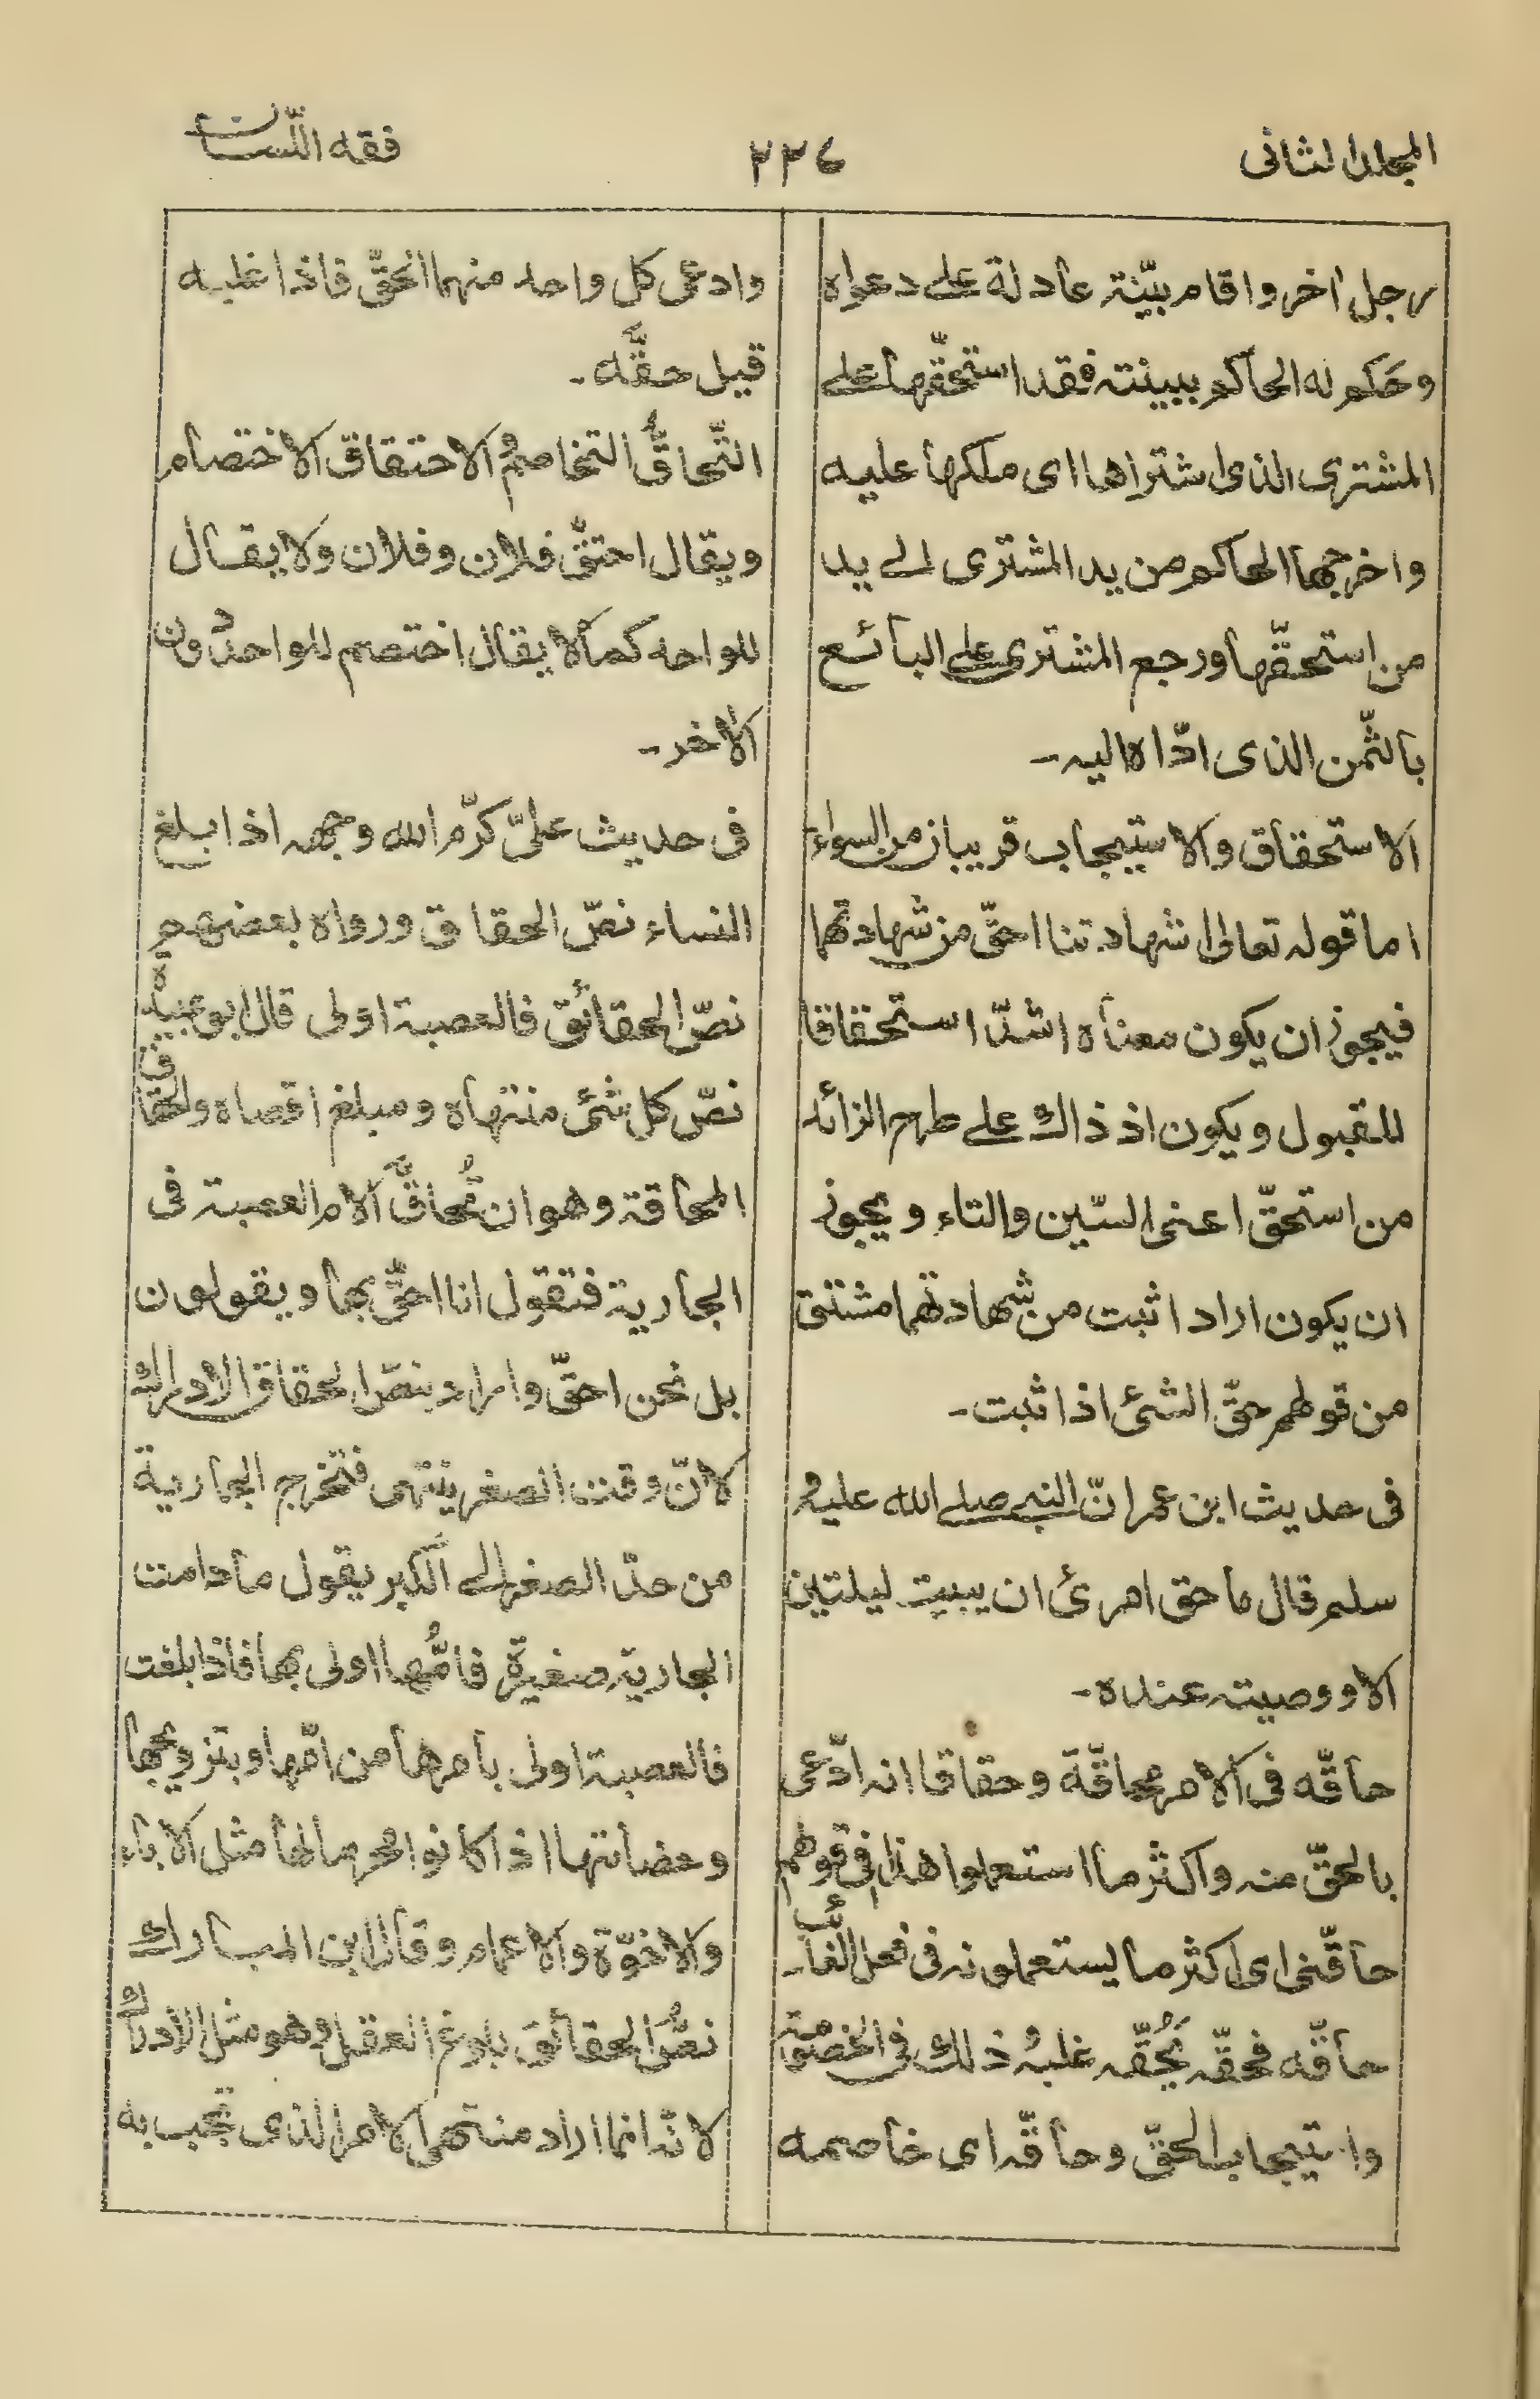 المجلد الثانى
٢٢٤
فقه اللّسان
رجل اخر واقام بيّنة عادلة على دعواه
وحَكم له الحاكم ببينته فقد استحقّها على
المشترى الذى اشتراها اى ملكها عليه
واخرجها الحاكم من يد المشترى الى يد
من استحقّها ورجع المشترى على البائع
بالثّمن الذى ادّاه اليه ـ
الاستحقاق والاستيجاب قريبان من السواء
اما قوله تعالى شهادتنا احقّ من شهادتهما
فيجوز ان يكون معناه اشدّ استحقاقا
للقبول ويكون اذ ذاك على طرح الزائد
من استحقّ اعنى السّين والتاء ويجوز
ان يكون اراد اثبت من شهادتهما مشتق
من قولهم حقّ الشئ اذا ثبت ـ
فى حديث ابن عمر انّ النبى صلى الله عليه و
سلم قال ما حق امرئ ان يبيت ليلتين
الا ووصيته عنده ـ
حاقّه فى الامر محاقّة وحقاقا انه ادّعى
بالحقّ منه واكثر ما استعملوا هذا فى قولهم
حاقّنى اى اكثر ما يستعملونه فى فعل الغائب ـ
حاقّه فحقّه يَحُقّه غلبهُ ذلك فى الخصومة
واستيجاب الحقّ وحاقّه اى خاصمه
وادعى كل واحد منهما الحقّ فاذا غلبه
قيل حقَّه ـ
التّحاقُّ التخاصمُ الاحتقاق الاختصام
ويقال احتقّ فلان وفلان ولا يقال
للواحد كما لا يقال اختصم للواحد دون
الاخر ـ
فى حديث علىّ كرّم الله وجهه اذا بلغ
النساء نصّ الحقاق ورواه بعضهم
نصّ الحقائق فالعصبة اولى قال ابو عبيدة
نصّ كل شئ منتهاه ومبلغ اقصاه والحقاق
المحاقة وهو ان تُحاقَّ الام العصبة فى
الجارية فتقول انا احقُّ بها ويقولون
بل نحن احقّ واراد بنصّ الحقاق الادراك
لانّ وقت الصغر ينتهى فتخرج الجارية
من حدّ الصغر الى الكبر يقول ما دامت
الجارية صغيرة فامُّها اولى بها فاذا بلغت
فالعصبة اولى بامرها من امّها وبتزويجها
وحضانتها اذا كانوا محرما لها مثل الاباء
والاخوّة والاعمام وقال ابن المبارك
نصُّ الحقائق بلوغ العقل وهو مثل الادراك
لانّه انما اراد منتهى الامر الذى تجب به